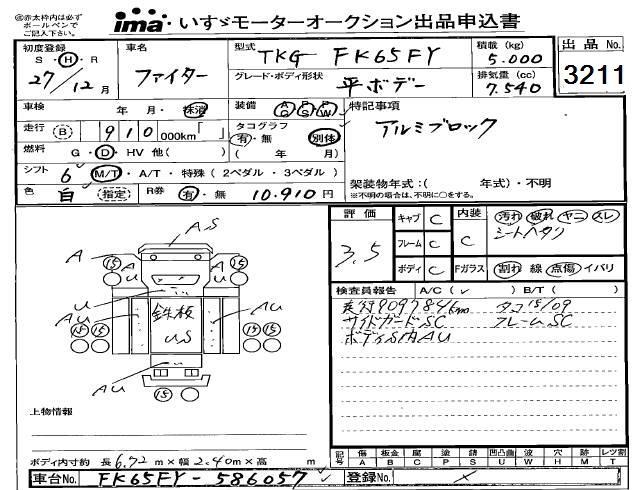 ※赤太枠内は必ず
ボールペンで
ご記入下さい。
ima いすゞモーターオークション出品申込書
出品No.
3211
初度登録
S・H・R
27/12月
車名
ファイター
型式
TKG FK65FY
グレード・ボディ形状
平ボデー
積載(kg)
5.000
排気量(cc)
7.540
車検 年・月・抹消
装備 A/G P/S P/W
特記事項
アルミブロック
走行(B) 910 000km「 」
タコグラフ
有・無 別体
( 年 月)
燃料 G・D・HV 他( )
シフト 6 M/T・A/T・特殊(2ペダル・3ペダル)
架装物年式:( 年式)・不明
※不明の場合は、不明に○をする。
色 白 (指定) R券 有・無 10.910円
評価
3.5
キャブ C
フレーム C
ボディ C
内装 C
汚れ 破れ ヤニ スレ
シートヘタリ
Fガラス 割れ 線 点傷 イバリ
検査員報告 A/C(✓) B/T( )
実付909784km タコ15/09
サイドガードSC フレームSC
ボディS内AU
A S
A
A
A
U
U
AU
AU
AU
鉄板
US
15
15
15 15
15 15
15
上物情報
ボディ内寸約 長6.72m×幅2.40m×高 m
記号 傷 A 板金 B 腐 C 塗 P 錆 S 凹凸曲 U 波 W 穴 H 跡 M レツ割 T
車台No. FK65FY-586057
登録No. ×